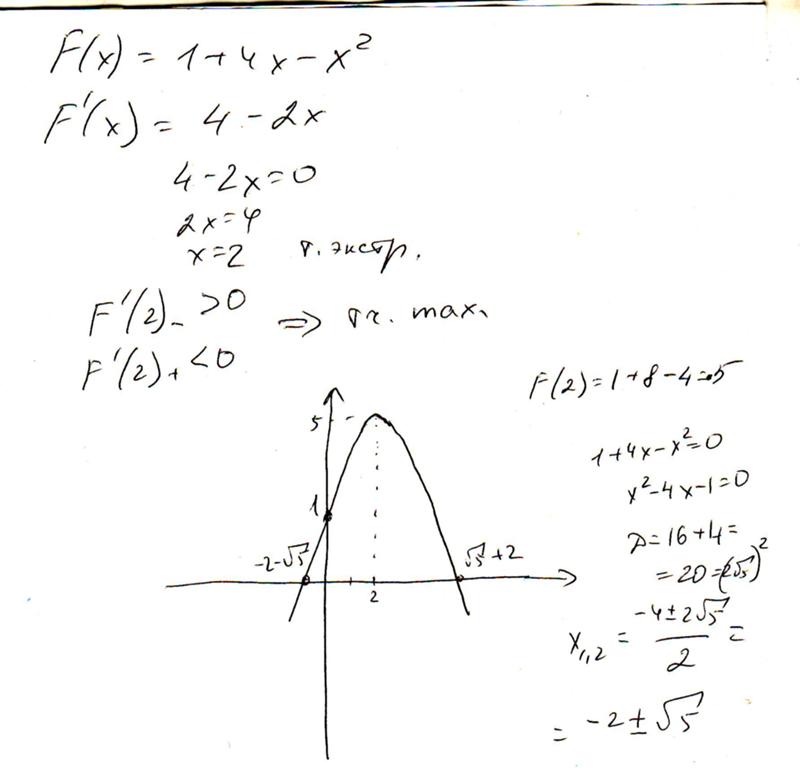 F(x) = 1+4x-x²
F'(x) = 4-2x
4-2x=0
2x=4
x=2 т. экстр.
F'(2)₋ >0 ⇒ тч. max.
F'(2)₊ <0
F(2)=1+8-4=5
1+4x-x²=0
x²-4x-1=0
D=16+4=
=20=(2√5)²
x₁,₂ = (-4±2√5)/2 =
= -2±√5
5
1
-2-√5
√5+2
2